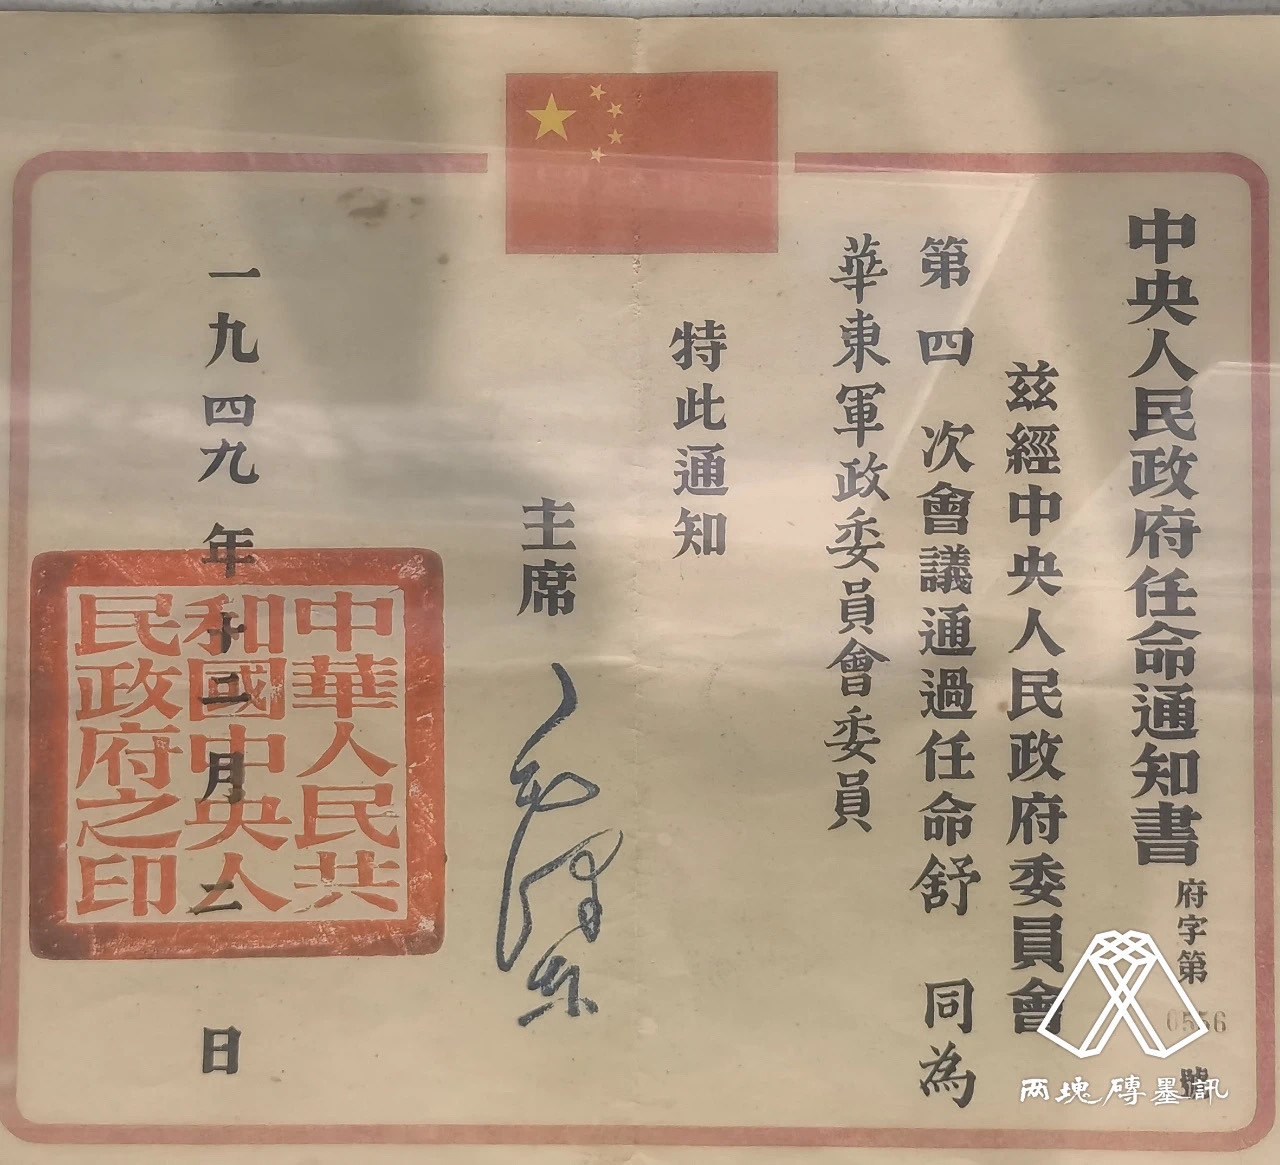 中央人民政府任命通知書
府字第0556號
茲經中央人民政府委員會
第四次會議通過任命舒同為
華東軍政委員會委員
特此通知
主席 毛澤東
一九四九年十二月二日
中華人民共
和國中央人
民政府之印
两塊磚墨訊